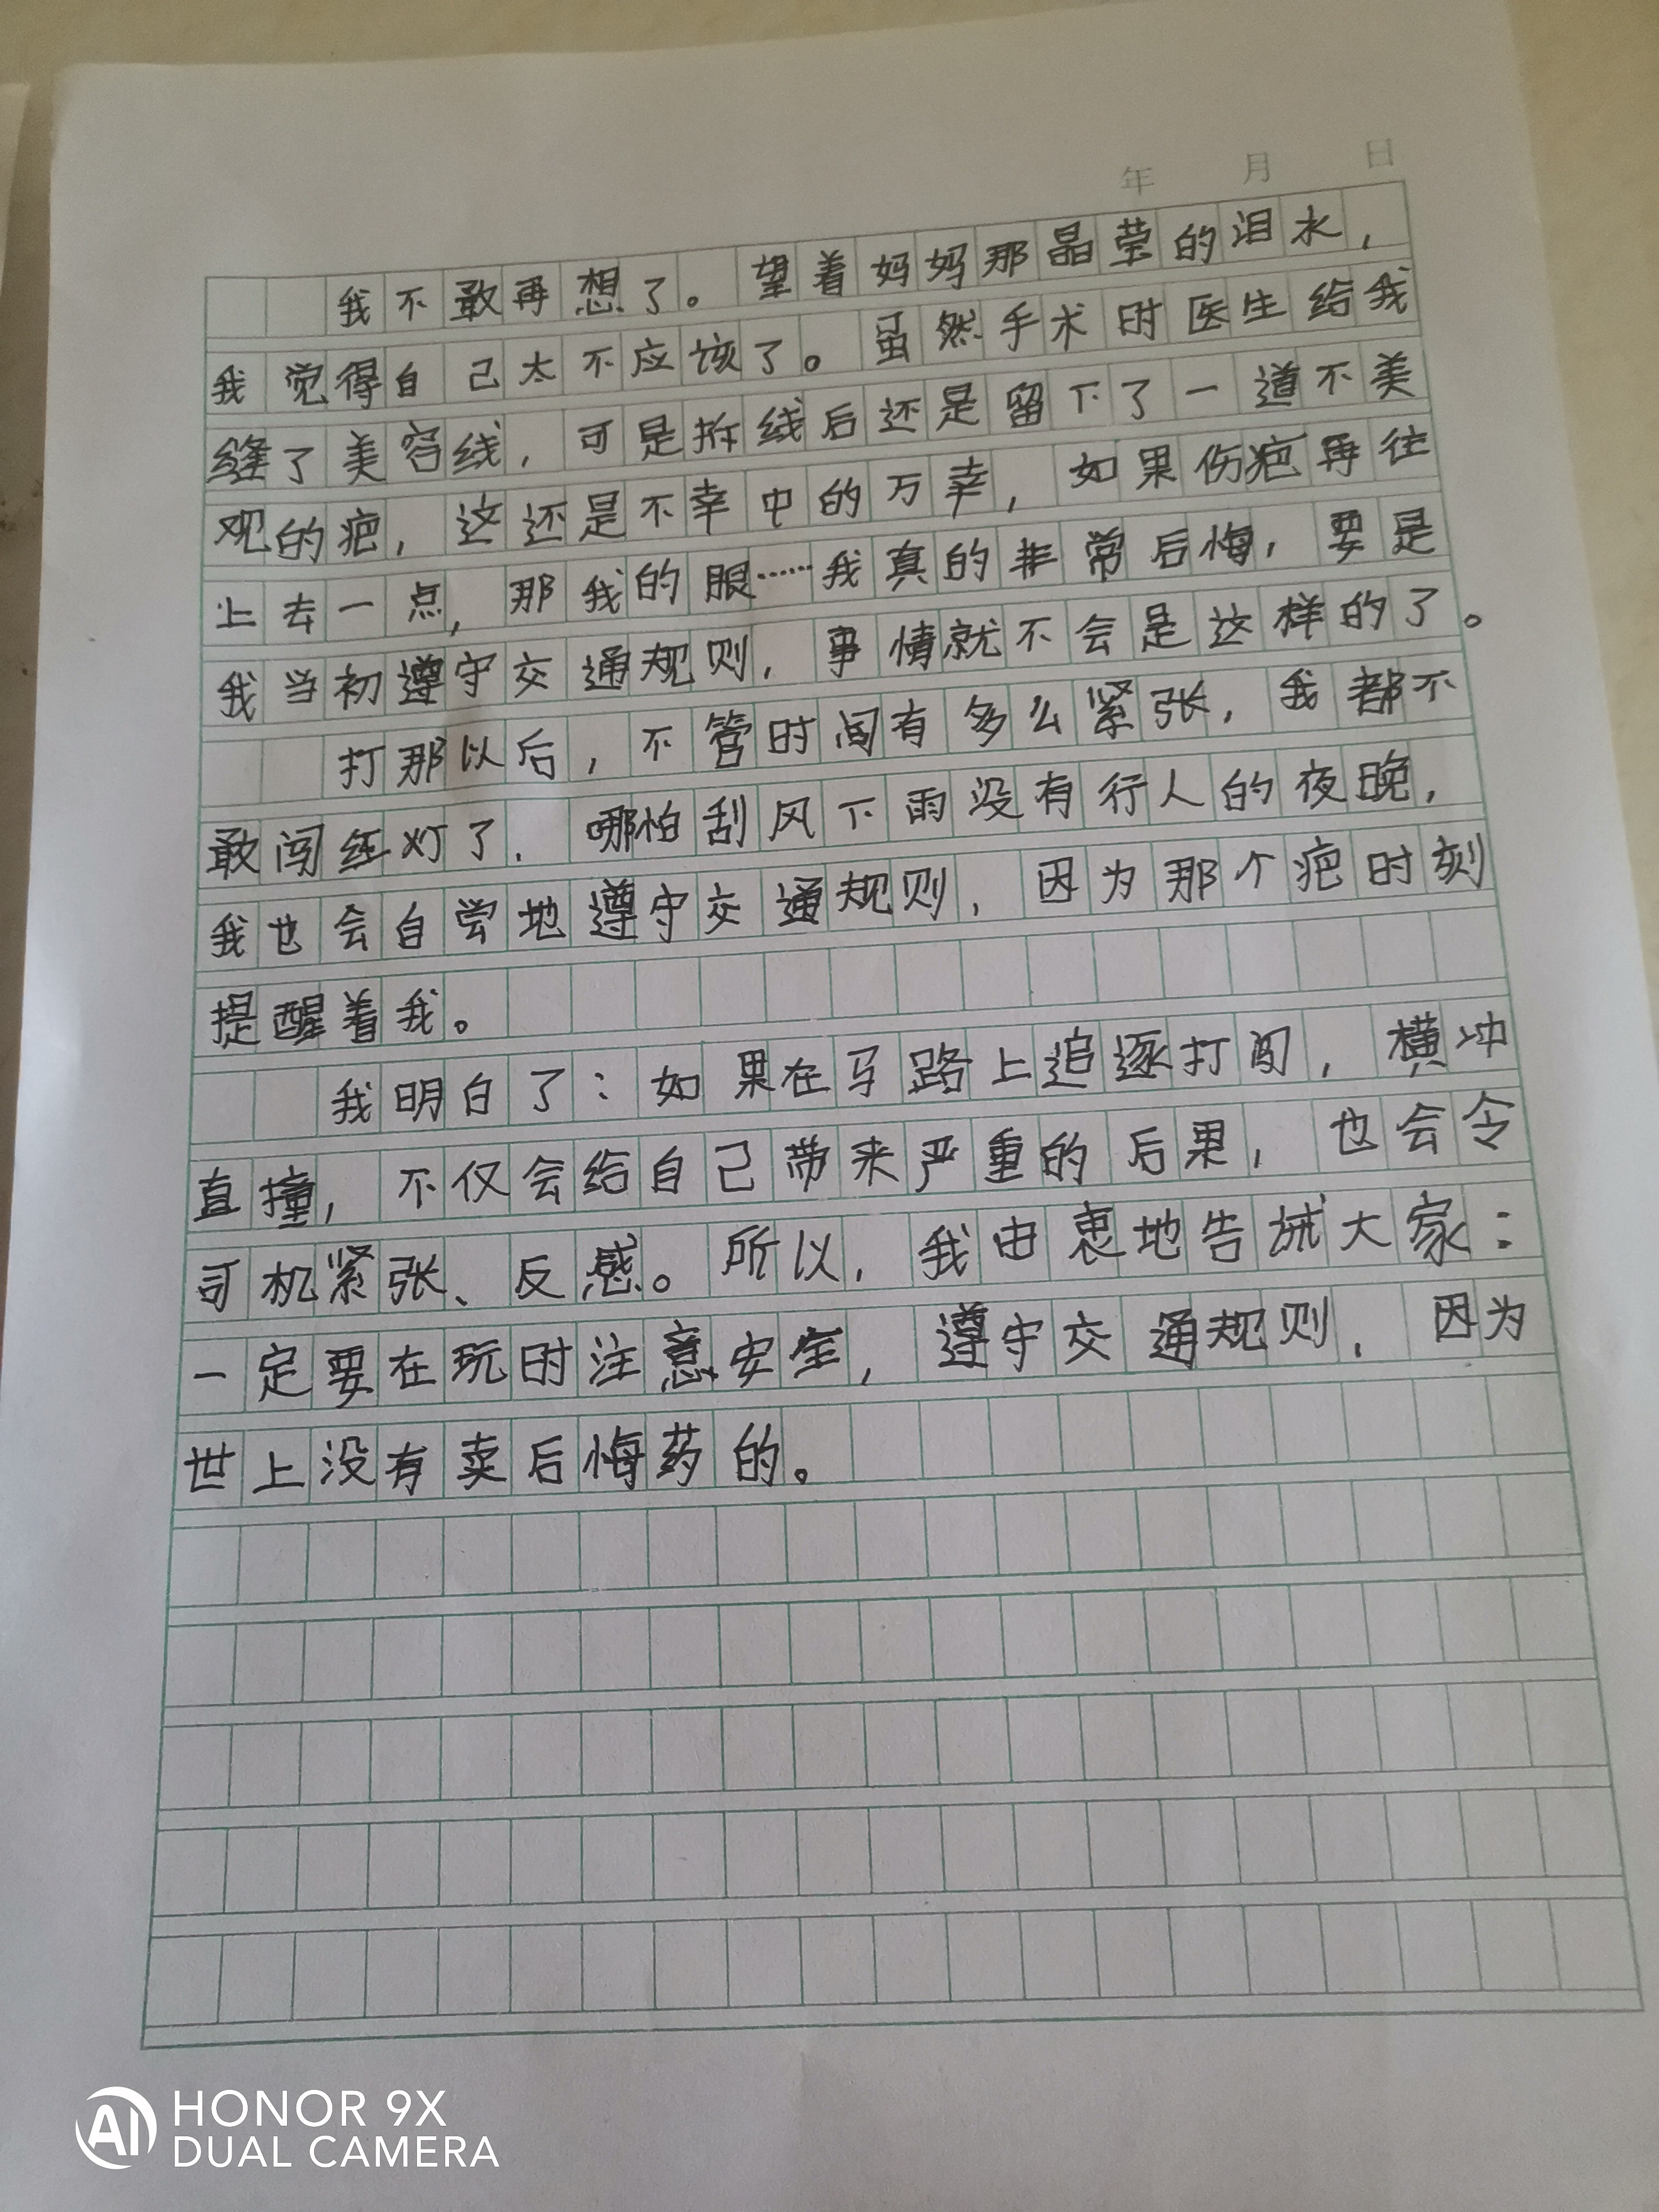 年 月 日
我不敢再想了。望着妈妈那晶莹的泪水，
我觉得自己太不应该了。虽然手术时医生给我
缝了美容线，可是拆线后还是留下了一道不美
观的疤，这还是不幸中的万幸，如果伤疤再往
上去一点，那我的眼……我真的非常后悔，要是
我当初遵守交通规则，事情就不会是这样的了。
打那以后，不管时间有多么紧张，我都不
敢闯红灯了．哪怕刮风下雨没有行人的夜晚，
我也会自尝地遵守交通规则，因为那个疤时刻
提醒着我。
我明白了：如果在马路上追逐打闹，横冲
直撞，不仅会给自己带来严重的后果，也会令
司机紧张、反感。所以，我由衷地告诫大家：
一定要在玩时注意安全，遵守交通规则，因为
世上没有卖后悔药的。
AI HONOR 9X
DUAL CAMERA